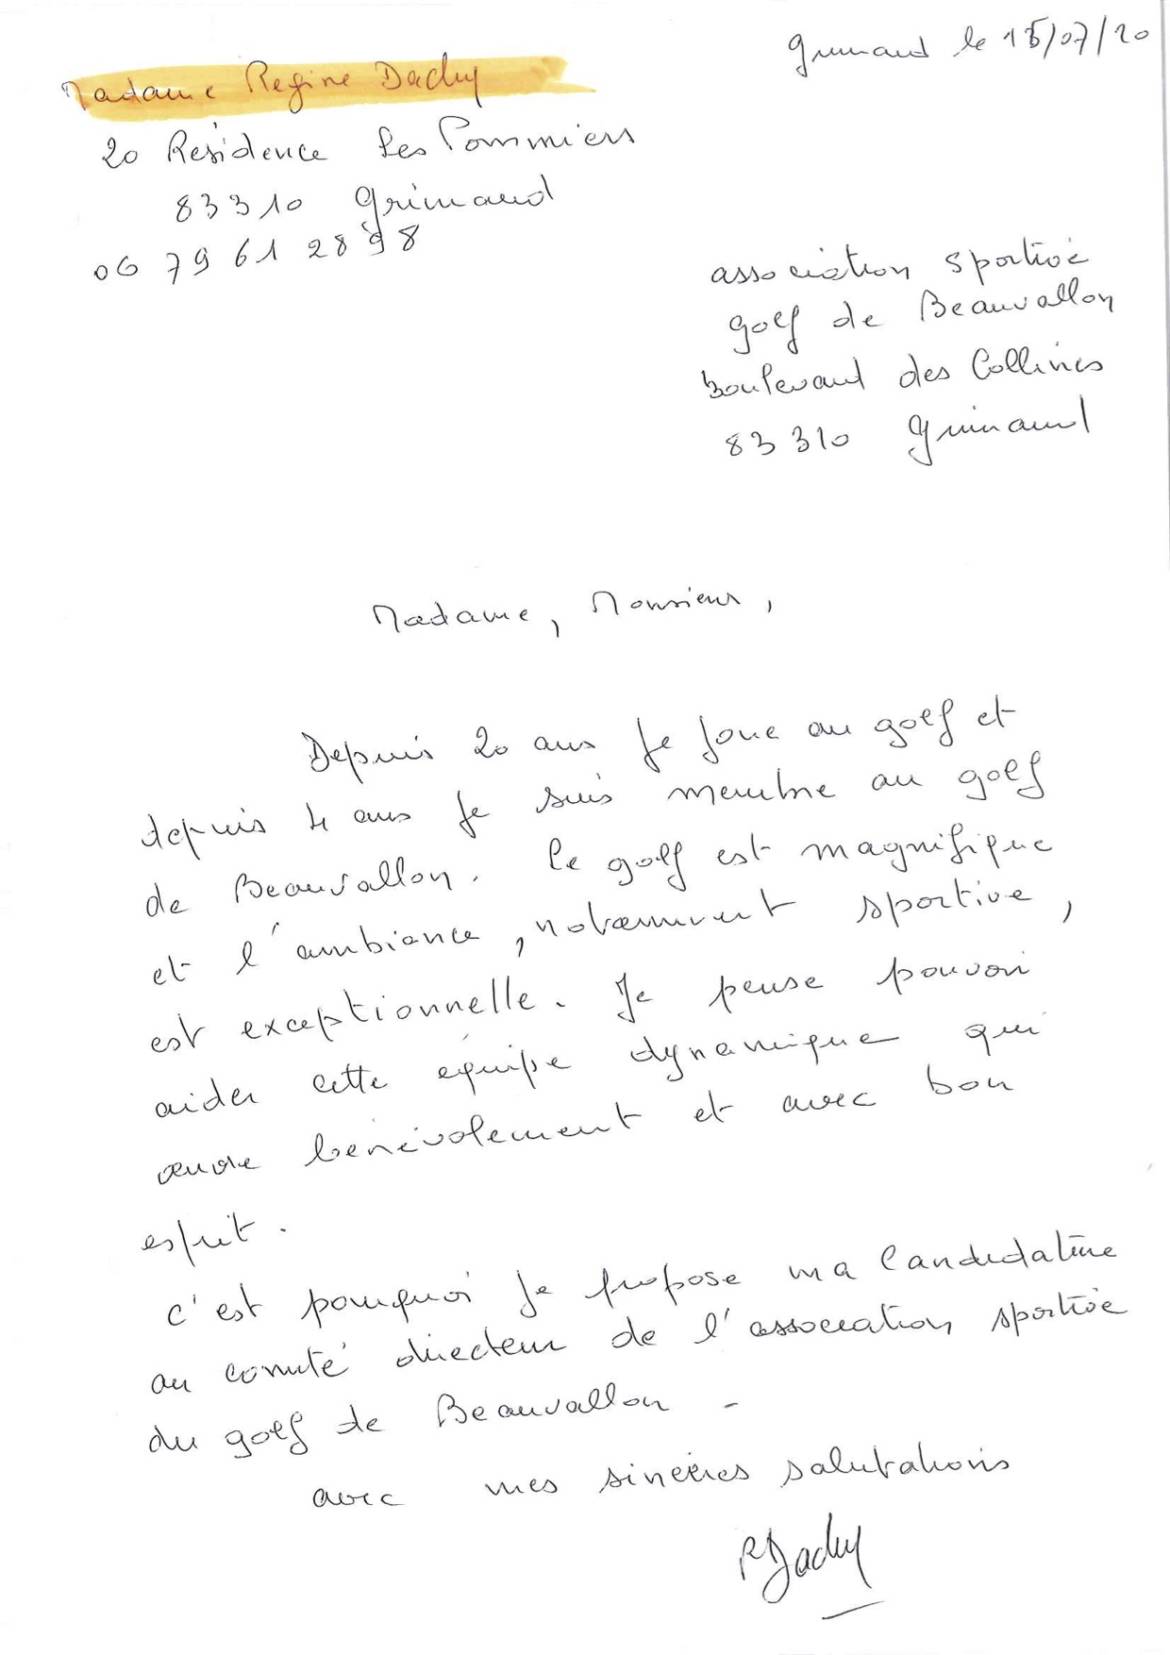 Grimaud le 15/07/20
Madame Regine Dachy
20 Residence Les Pommiers
83310 Grimaud
06 79 61 28 98
association sportive
golf de Beauvallon
Boulevard des Collines
83310 Grimaud
Madame, Monsieur,
Depuis 20 ans je joue au golf et
depuis 4 ans je suis membre au golf
de Beauvallon. Ce golf est magnifique
et l'ambiance, notamment sportive,
est exceptionnelle. Je pense pouvoir
aider cette équipe dynamique qui
œuvre bénévolement et avec bon
esprit.
C'est pourquoi je propose ma candidature
au comité directeur de l'association sportive
du golf de Beauvallon -
avec mes sincères salutations
R Dachy